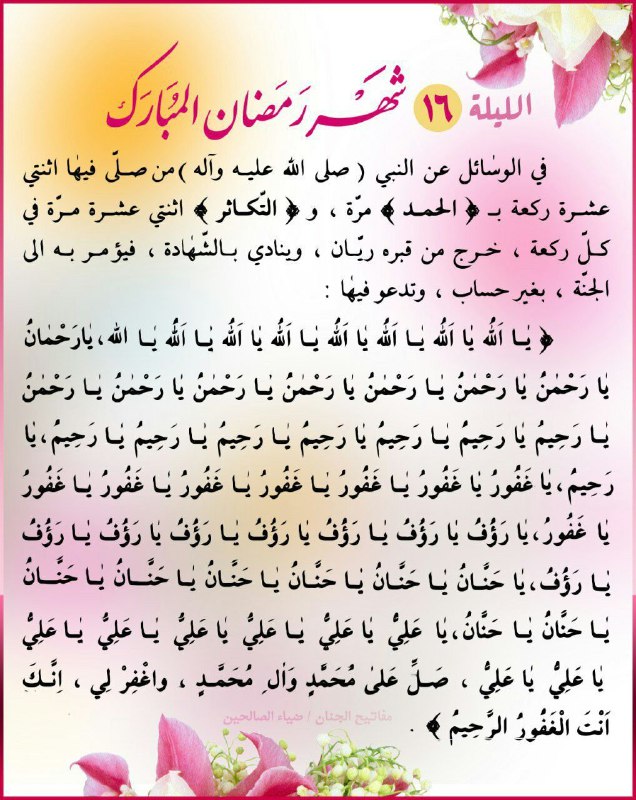 الليلة ١٦ شَهْر رَمَضان المُبَارَك
في الوسٰائل عن النبي ( صلى الله عليه وآله ) من صلّى فيهٰا اثنتي
عشرة ركعة بـ ﴿ الحمد ﴾ مرّة ، و ﴿ التّكاثر ﴾ اثنتي عشرة مرّة في
كلّ ركعة ، خرج من قبره ريّان ، وينادي بالشّهٰادة ، فيؤمر به الى
الجنّة ، بغير حساب ، وتدعو فيهٰا :
﴿ يٰا اَللهُ يٰا اَللهُ يٰا اَللهُ يٰا اَللهُ يٰا اَللهُ يٰا اَللهُ يٰا اَللهُ يٰا الله ،يٰارَحْمٰانُ
يٰا رَحْمٰنُ يٰا رَحْمٰنُ يٰا رَحْمٰنُ يٰا رَحْمٰنُ يٰا رَحْمٰنُ يٰا رَحْمٰنُ يٰا رَحْمٰنُ
يٰا رَحيمُ يٰا رَحيمُ يٰا رَحيمُ يٰا رَحيمُ يٰا رَحيمُ يٰا رَحيمُ يٰا رَحيمُ،يٰا
رَحيمُ ،يٰا غَفُورُ يٰا غَفُورُ يٰا غَفُورُ يٰا غَفُورُ يٰا غَفُورُ يٰا غَفُورُ يٰا غَفُورُ
يٰا غَفُورُ،يٰا رَؤُفُ يٰا رَؤُفُ يٰا رَؤُفُ يٰا رَؤُفُ يٰا رَؤُفُ يٰا رَؤُفُ يٰا رَؤُفُ
يٰا رَؤُفُ،يٰا حَنّٰانُ يٰا حَنّٰانُ يٰا حَنّٰانُ يٰا حَنّٰانُ يٰا حَنّٰانُ يٰا حَنّٰانُ
يٰا حَنّٰانُ يٰا حَنّٰانُ،يٰا عَلِيُّ يٰا عَلِيُّ يٰا عَلِيُّ يٰا عَلِيُّ يٰا عَلِيُّ يٰا عَلِيُّ
يٰا عَلِيُّ يٰا عَلِيُّ ، صَلِّ عَلىٰ مُحَمَّدٍ وَاٰلِ مُحَمَّدٍ ، واغْفِرْ لِي ، اِنَّكَ
اَنْتَ الْغَفُورُ الرَّحِيمُ ﴾ .
مفاتيح الجنان / ضياء الصالحين